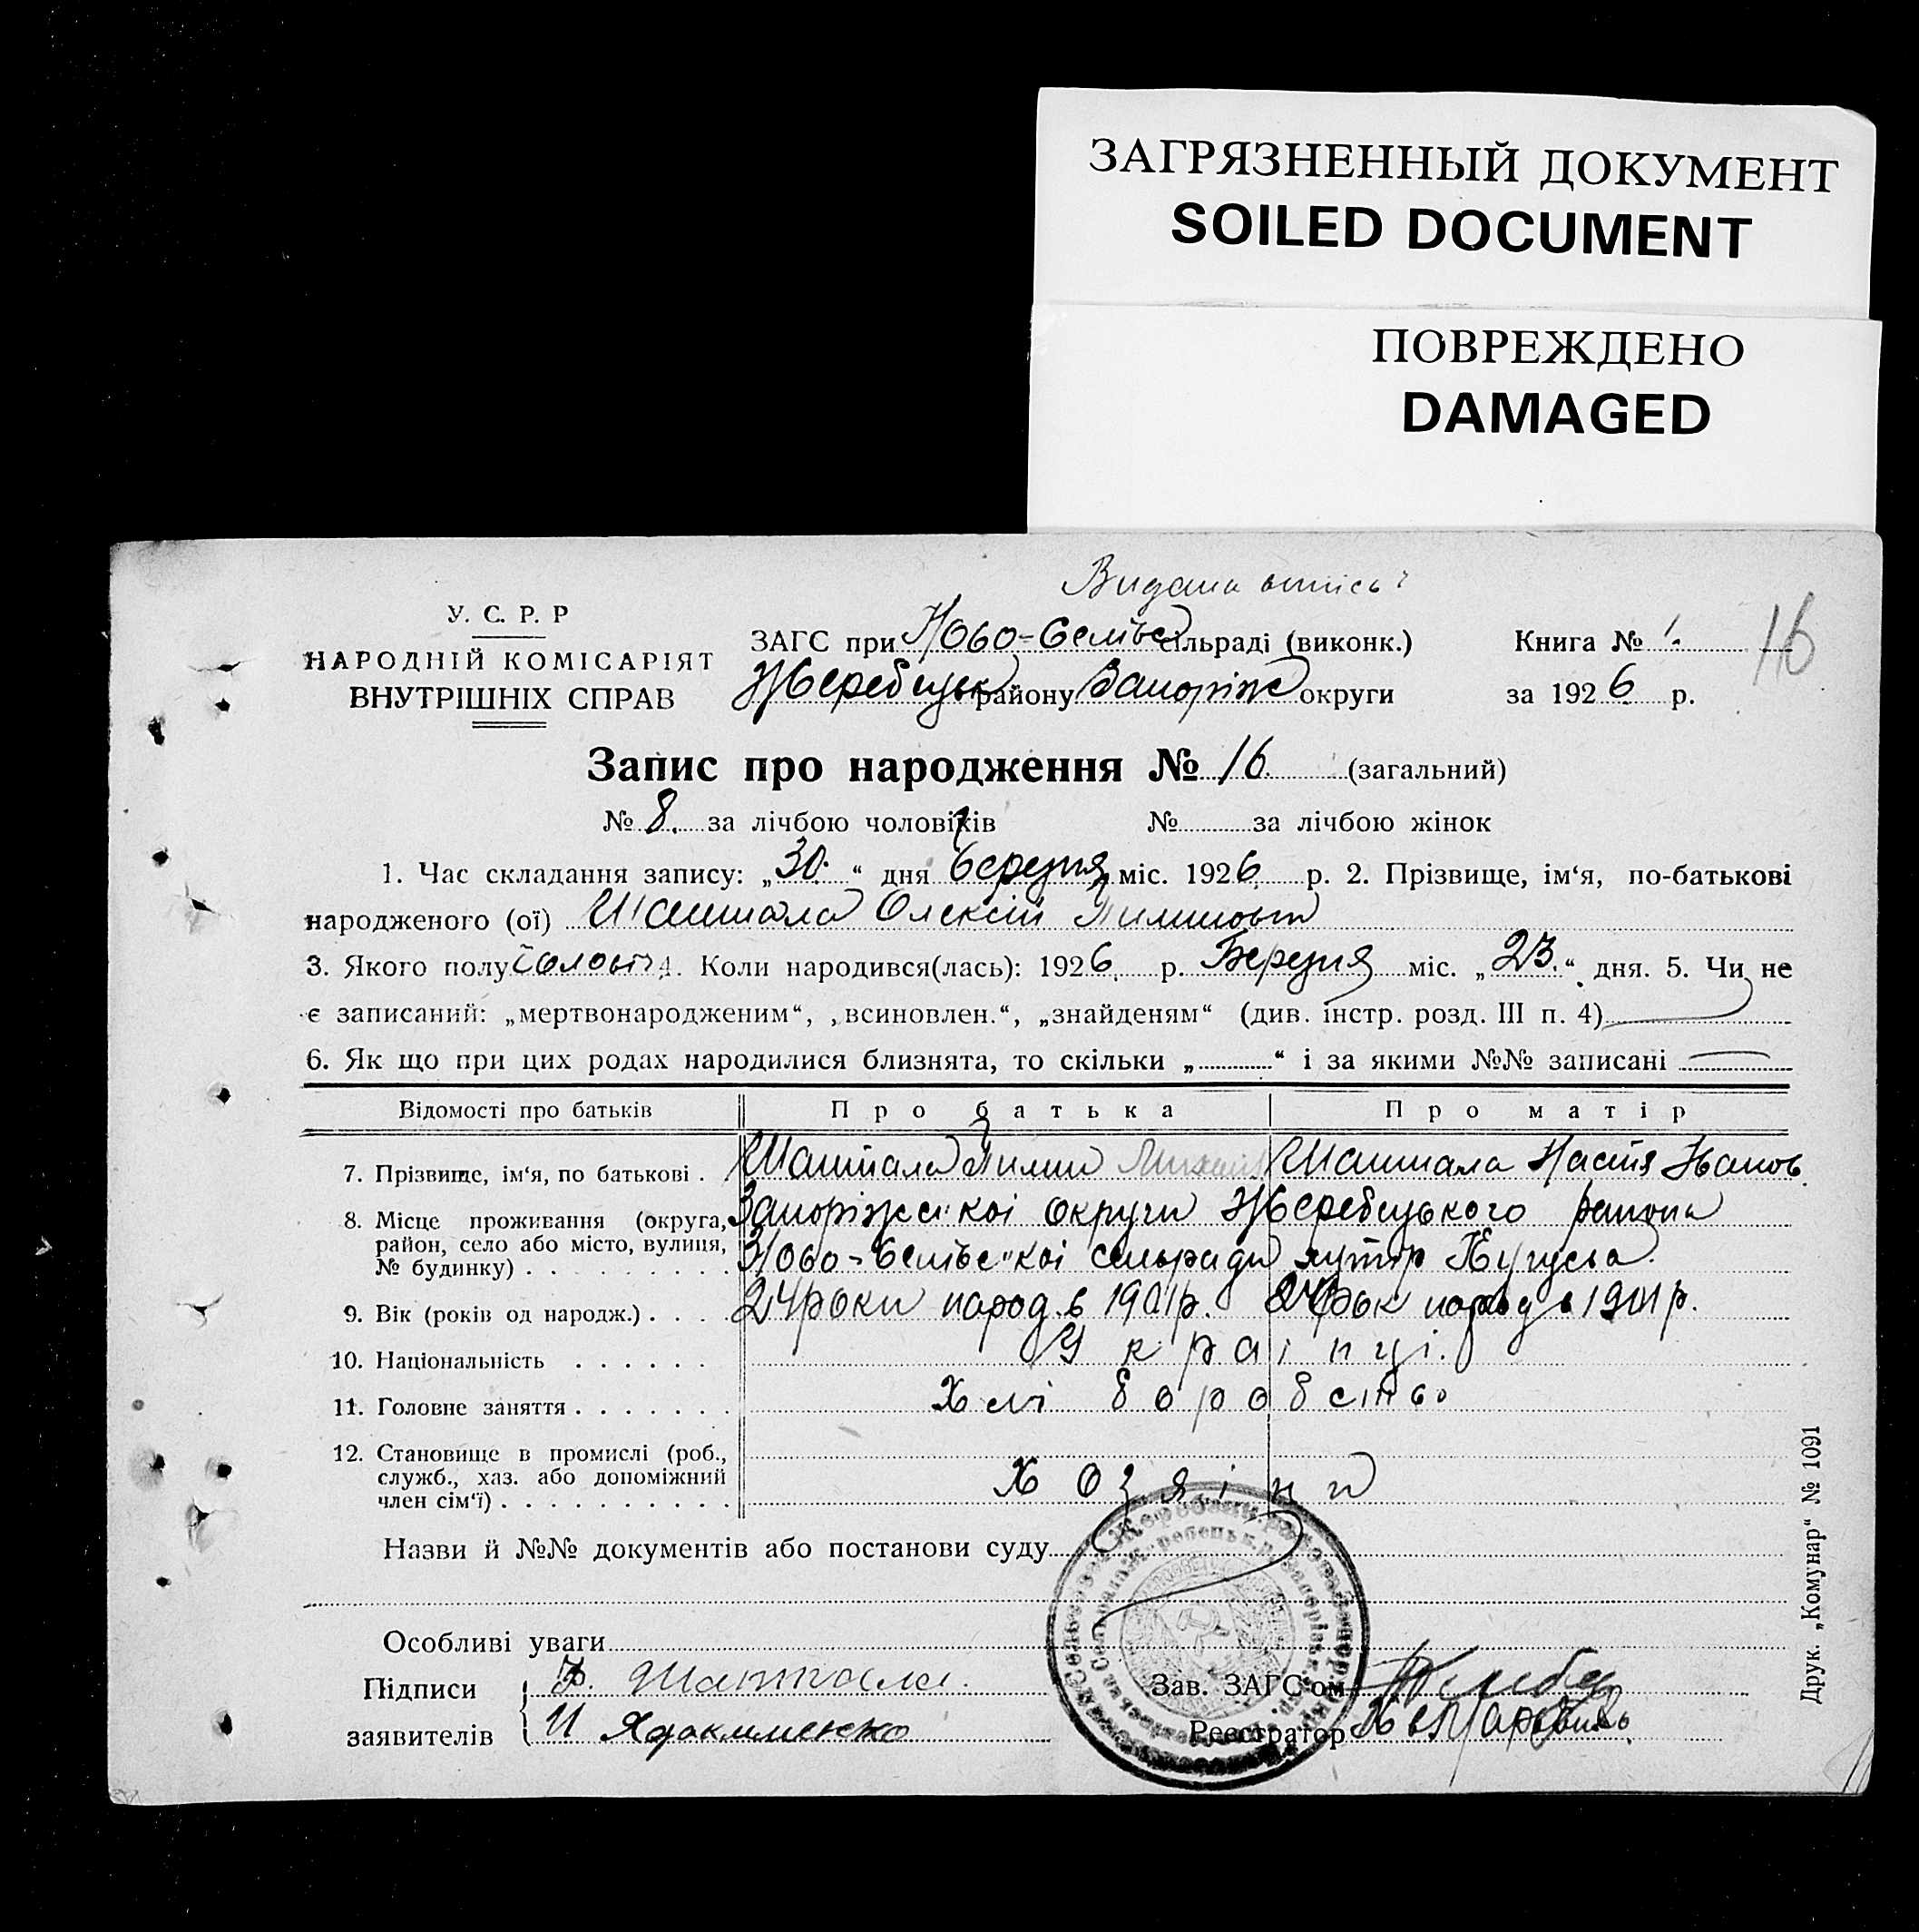 ЗАГРЯЗНЕННЫЙ ДОКУМЕНТ
SOILED DOCUMENT
ПОВРЕЖДЕНО
DAMAGED
Видана
У. С. Р. Р
НАРОДНІЙ КОМІСАРІЯТ
ВНУТРІШНІХ СПРАВ
ЗАГС при Ново- сільраді (виконк.)
Жеребецьк району Запоріж округи
Книга № 1. 16
за 1926 р.
Запис про народження № 16 (загальний)
№ 8. за лічбою чоловіків № за лічбою жінок
1. Час складання запису: „30.“ дня березня міс. 1926 р. 2. Прізвище, ім‘я, по-батькові
народженого (ої) Шаптала Олексій Пилипович
3. Якого полу чолович 4. Коли народився(лась): 1926 р. Березня міс. „23.“ дня. 5. Чи не
є записаний: „мертвонародженим“, „всиновлен.“, „знайденям“ (див. інстр. розд. III п. 4)
6. Як що при цих родах народилися близнята, то скільки „ “ і за якими №№ записані
Відомості про батьків Про батька Про матір
7. Прізвище, ім‘я, по батькові . Шаптала Пилип Шаптала Настя Іванов.
8. Місце проживання (округа, район, село або місто, вулиця, № будинку) . Запоріжської округи Жеребецького района
Ново- сельради хутір
9. Вік (років од народж.) . . . . 24 роки народ. в 1901 р. 24 рок народ в 1901 р.
10. Національність . . . . . . Українці.
11. Головне заняття . . . . . . . Хліборобство
12. Становище в промислі (роб., служб., хаз. або допоміжний член сім‘ї) . . . . . . . . . . Хозяіни
Назви й №№ документів або постанови суду
Особливі уваги
Підписи заявителів
Шаптала.
И Якименко
Зав. ЗАГС‘ом
Реєстратор
Друк. „Комунар“ № 1091